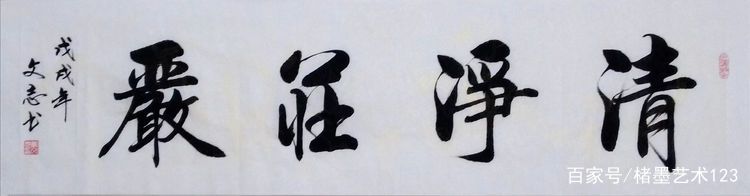 清淨莊嚴
戊戌年
文志书
百家号/楮墨艺术123